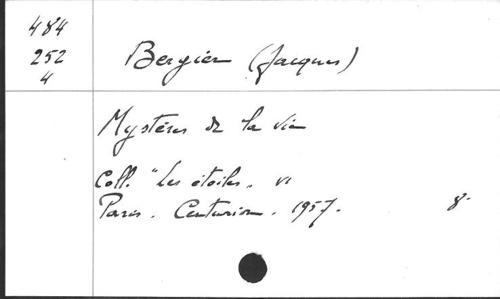 484
252
4
Bergier (Jacques)
Mystères de la vie
Coll. "Les étoiles. VI
Paris. Centurion. 1957. 8.